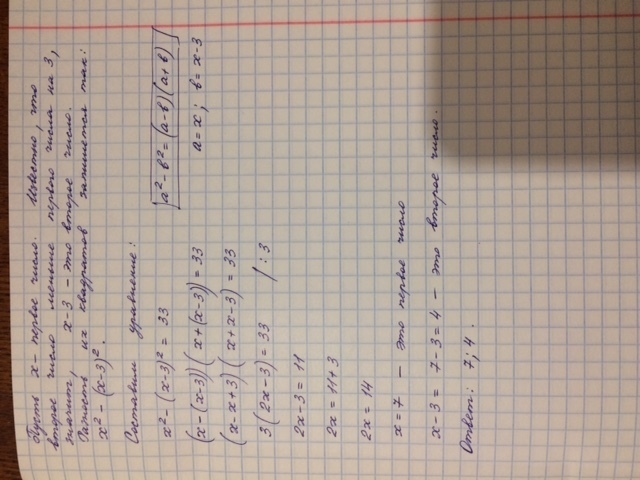 Пусть x - первое число. Известно, что
второе число меньше первого числа на 3,
значит, x-3 - это второе число.
Разность их квадратов запишется так:
x² - (x-3)².
Составим уравнение:
x² - (x-3)² = 33
a² - b² = (a-b)(a+b)
(x-(x-3))(x+(x-3)) = 33
a = x; b = x-3
(x-x+3)(x+x-3) = 33
3(2x-3) = 33 / : 3
2x-3 = 11
2x = 11+3
2x = 14
x = 7 - это первое число
x-3 = 7-3 = 4 - это второе число.
Ответ: 7; 4.